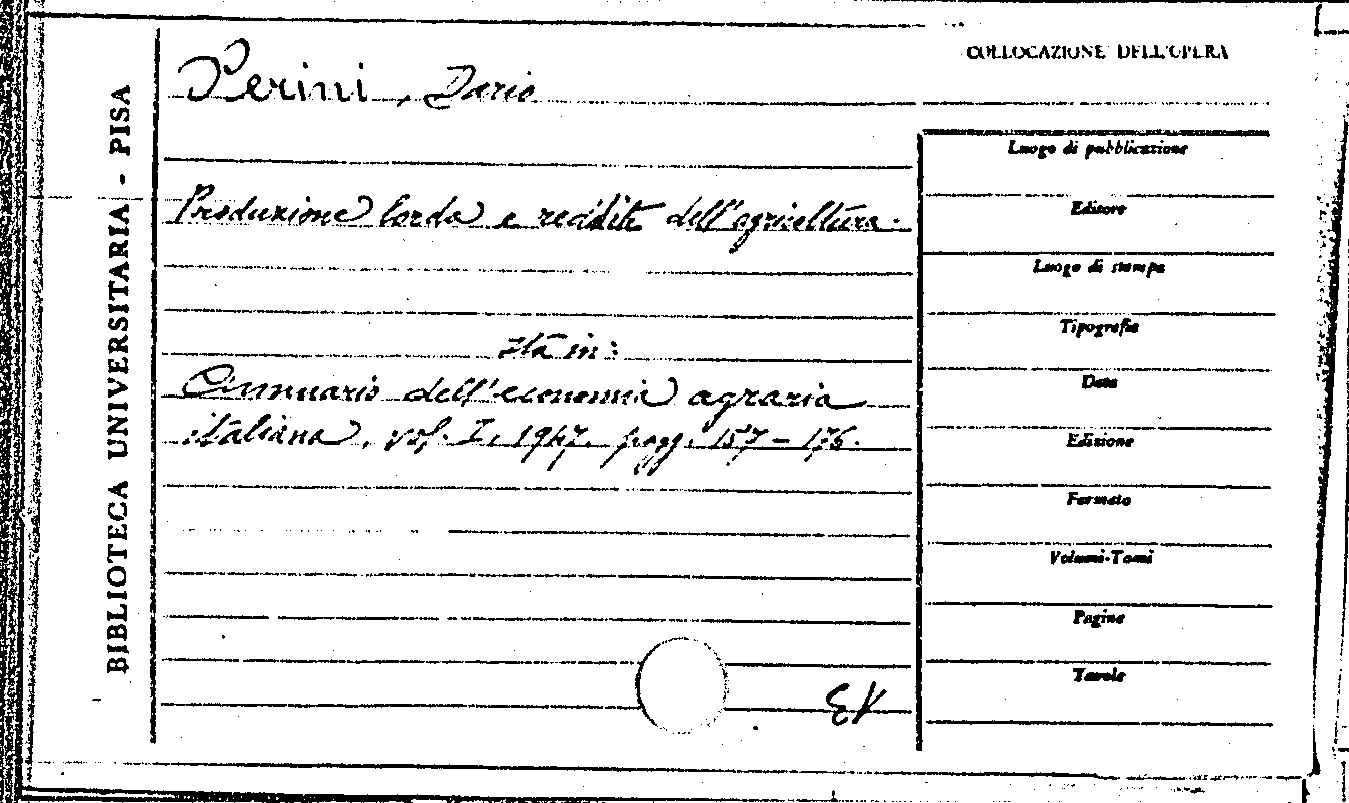 COLLOCAZIONE DELL'OPERA
Perini, Dario
BIBLIOTECA UNIVERSITARIA - PISA
Produzione lorda e redditi dell'agricoltura.
Sta in:
Annuario dell'economia agraria
italiana, vol. I, 1947, pagg. 157-176.
Luogo di pubblicazione
Editore
Luogo di stampa
Tipografia
Data
Edizione
Formato
Volumi-Tomi
Pagine
Tavole